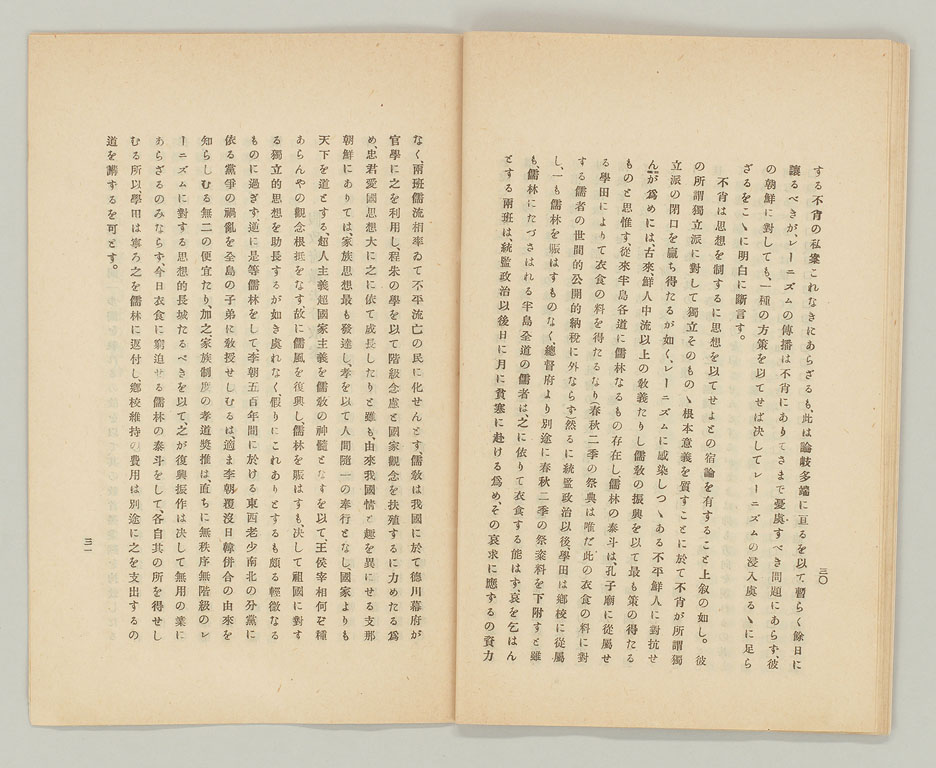 三〇
する不肖の私案これなきにあらざるも、此は論岐多端に亘るを以て暫らく餘日に
讓るべきが、レーニズムの傳播は不肖にありてさまで憂慮すべき問題にあらず、彼
の朝鮮に對しても、一種の方策を以てせば決してレーニズムの浸入虞るゝに足ら
ざるをこゝに明白に斷言す。
不肖は思想を制するに思想を以てせよとの宿論を有すること上叙の如し。彼
の所謂獨立派に對して獨立そのものゝ根本意義を質すことに於て不肖が所謂獨
立派の閉口を贏ち得たるが如く、レーニズムに感染しつゝある不平鮮人に對抗せ
んが爲めには古來、鮮人中流以上の敎義たりし儒敎の振興を以て最も策の得たる
ものと思惟す、從來半島各道に儒林なるもの存在し儒林の泰斗は、孔子廟に從屬せ
る學田によりて衣食の料を得たるなり(春秋二季の祭典は唯だ此の衣食の料に對
する儒者の世間的公開的納稅に外ならず)然るに統監政治以後學田は鄕校に從屬
し、一も儒林を賑はすものなく、總督府より別途に春秋二季の祭粢料を下附すと雖
も、儒林にたづさはれる半島全道の儒者は、之に依りて衣食する能はず、哀を乞はん
とする兩班は、統監政治以後日に月に貧寒に赴ける爲め、その哀求に應ずるの資力
なく、兩班儒流相率ゐて不平流亡の民に化せんとす、儒敎は我國に於て德川幕府が
官學に之を利用し、程朱の學を以て階級念慮と國家觀念を扶殖するに力めたる爲
め、忠君愛國思想大に之に依て成長したりと雖も、由來我國情と趣を異にせる支那
朝鮮にありては、家族思想最も發達し、孝を以て人間隨一の奉行となし、國家よりも
天下を道とする、超人主義超國家主義を儒敎の神髓となすを以て、王侯宰相何ぞ種
あらんやの觀念根抵をなす、故に儒風を復興し、儒林を賑はすも、決して祖國に對す
る獨立的思想を助長するが如き虞れなく、假りにこれありとするも頗る輕微なる
ものに過ぎず、逆に是等儒林をして、李朝五百年間に於ける東西老少南北の分黨に
依る黨爭の禍亂を全島の子弟に敎授せしむるは、適ま李朝覆沒日韓倂合の由來を
知らしむる無二の便宜たり、加之家族制度の孝道奬推は、直ちに無秩序無階級のレ
ーニズムに對する思想的長城たるべきを以て、之が復興振作は決して無用の業に
あらざるのみならず、今日衣食に窮迫せる儒林の泰斗をして、各自其の所を得せし
むる所以、學田は寧ろ之を儒林に返付し鄕校維持の費用は別途に之を支出するの
道を講ずるを可とす。
三一